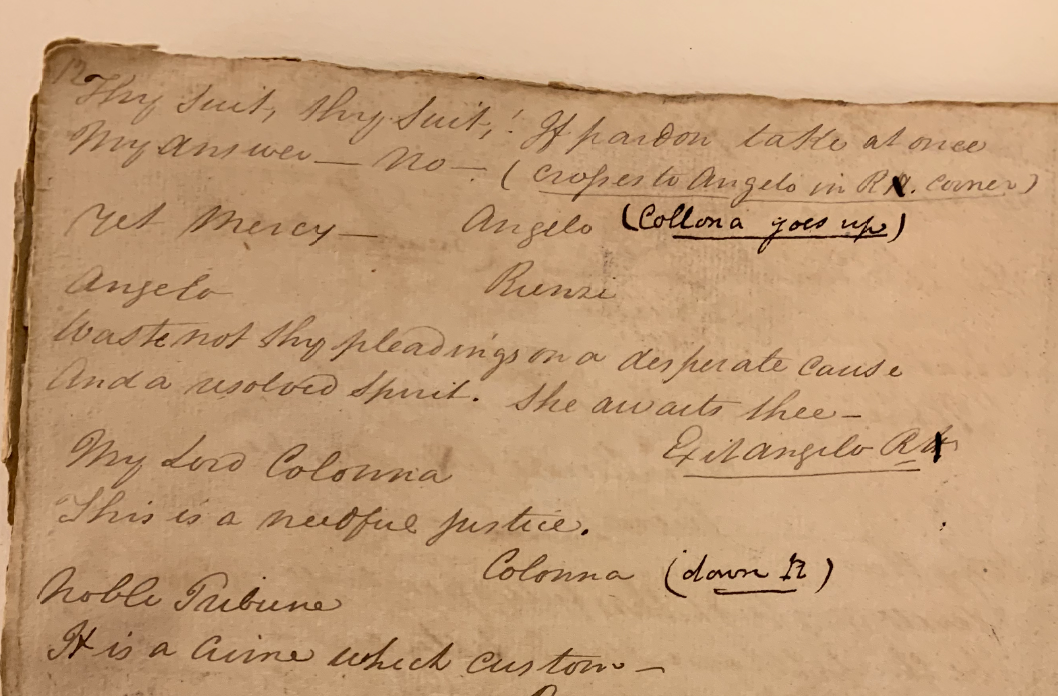 12
Thy suit, thy suit,! If pardon take at once
My Answer — No — (crosses to Angelo in R. corner)
Yet Mercy — Angelo (Collona goes up)
Angelo Rienzi
Waste not thy pleadings on a desperate cause
And a resolved spirit. She awaits thee —
Exit Angelo R
My Lord Colonna
This is a needful justice.
Colonna (down R)
Noble Tribune
It is a Crime which custom —